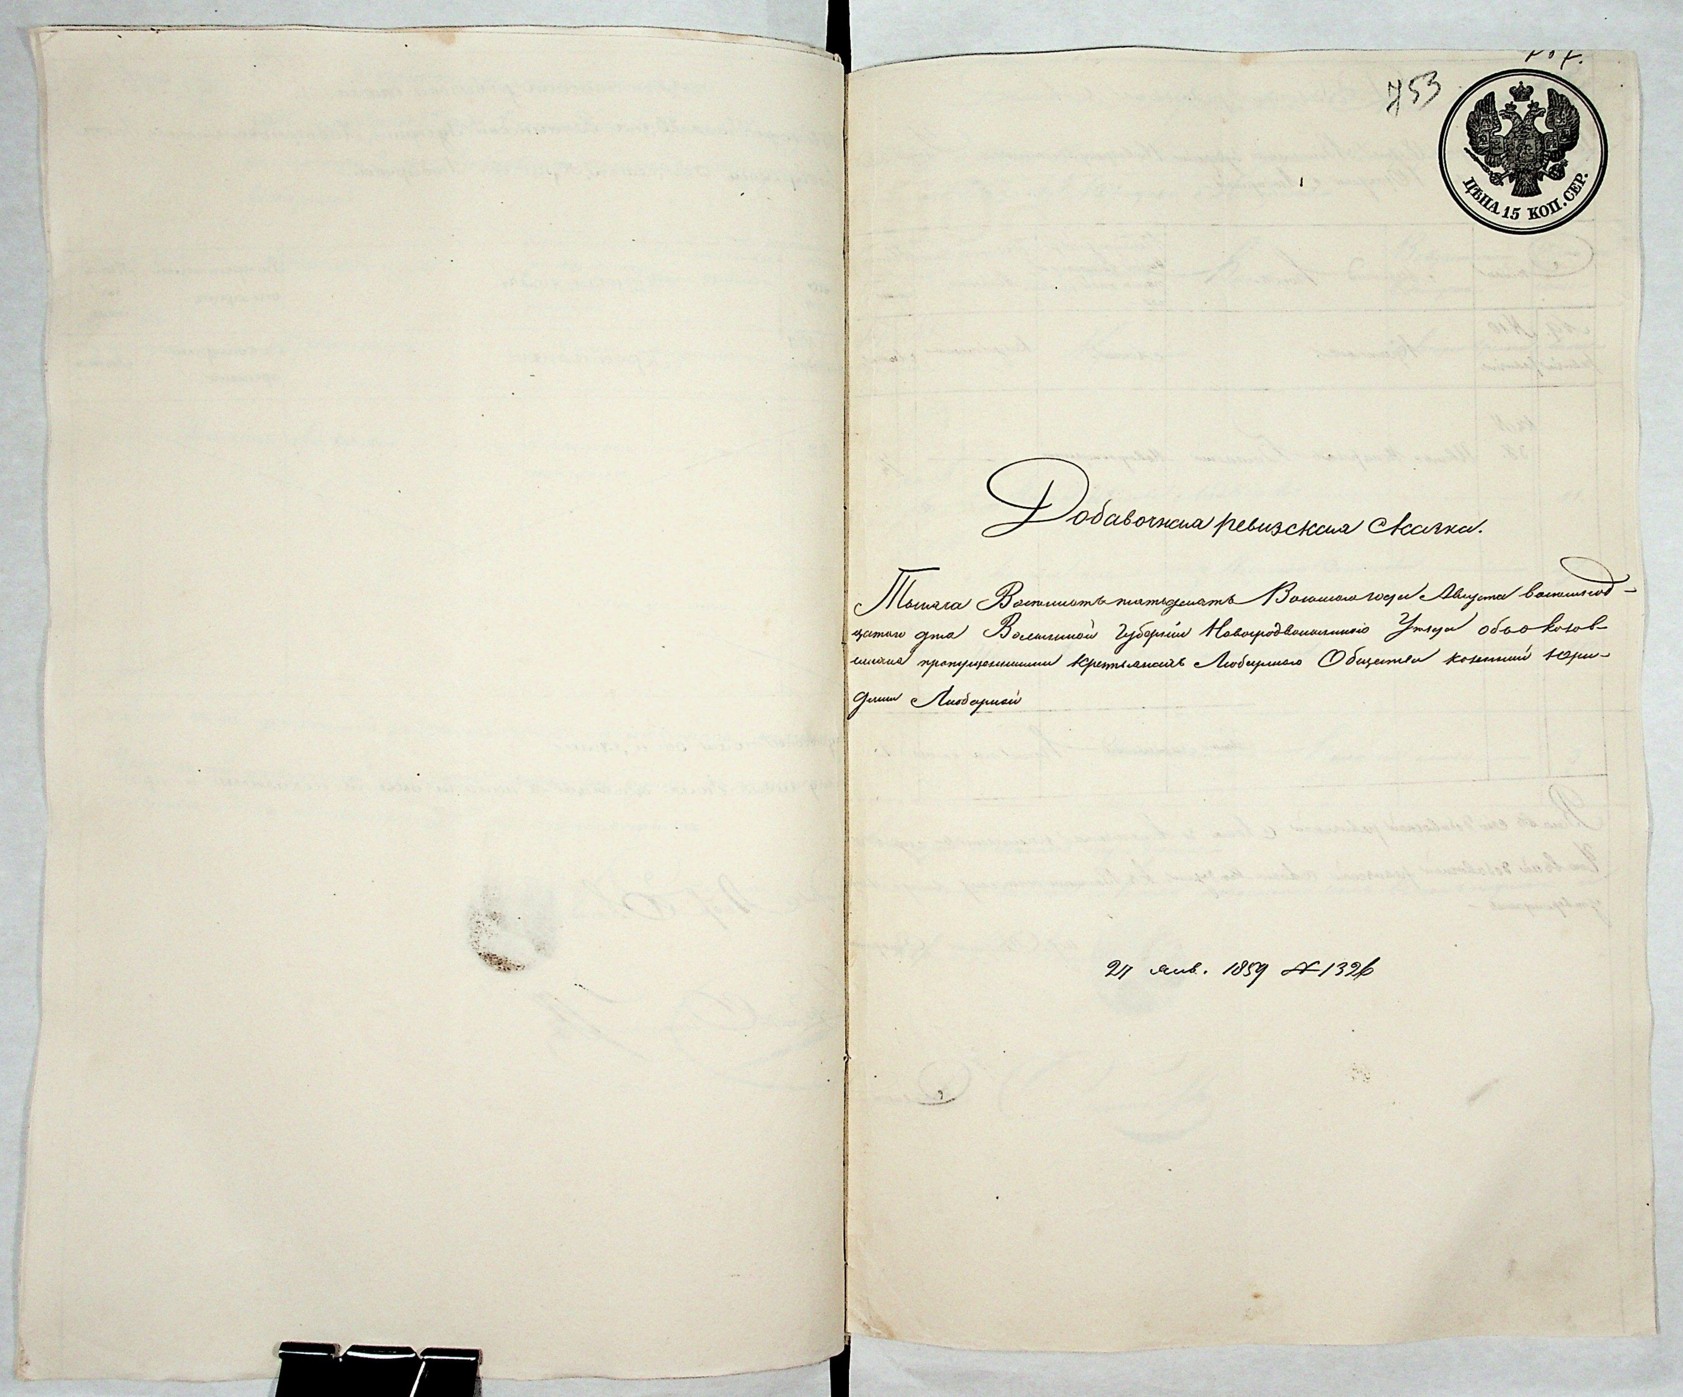 753
ЦѢНА 15 КОП. СЕР.
Добавочная ревизская сказка.
Тысяча Восемьсотъ пятьдесятъ Восьмого года Августа восемьнад-
цатаго дня Волынской Губерніи Новоградволынского Уѣзда обо
пропущенными крестьянахъ Любарского Общества казенной Юри-
дики Любарской
27 янв. 1859 № 1326